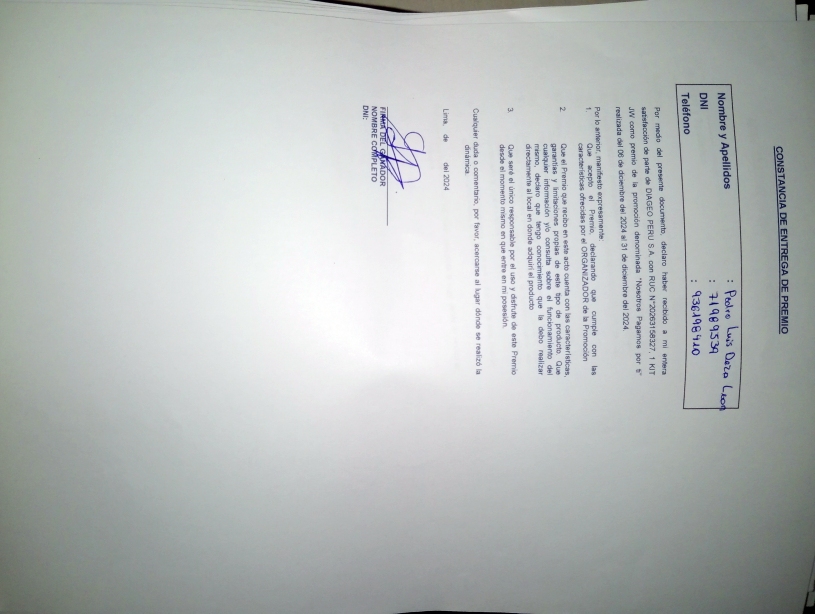 CONSTANCIA DE ENTREGA DE PREMIO
Nombre y Apellidos : Pedro Luis Daza Leon
DNI : 71989539
Teléfono : 936198410
Por medio del presente documento, declaro haber recibido a mi entera
satisfacción de parte de DIAGEO PERU S.A. con RUC N°20263158327, 1 KIT
JW como premio de la promoción denominada "Nosotros Pagamos por ti"
realizada del 06 de diciembre del 2024 al 31 de diciembre del 2024.
Por lo anterior, manifiesto expresamente:
1. Que acepto el Premio, declarando que cumple con las
características ofrecidas por el ORGANIZADOR de la Promoción
2. Que el Premio que recibo en este acto cuenta con las características,
garantías y limitaciones propias de este tipo de producto. Que
cualquier información y/o consulta sobre el funcionamiento del
mismo, declaro que tengo conocimiento que la debo realizar
directamente al local en donde adquirí el producto
3. Que seré el único responsable por el uso y disfrute de este Premio
desde el momento mismo en que entre en mi posesión.
Cualquier duda o comentario, por favor, acercarse al lugar dónde se realizó la
dinámica.
Lima, de del 2024
FIRMA DEL GANADOR
NOMBRE COMPLETO
DNI: